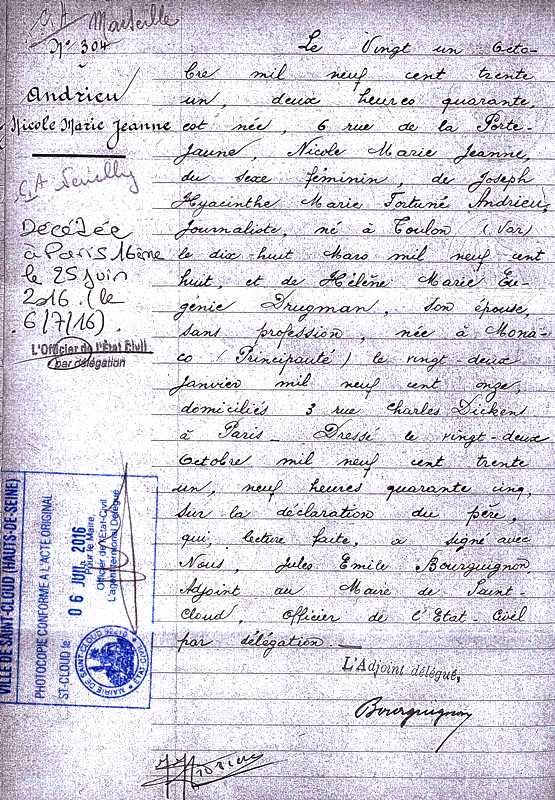 C.A Marseille
N° 304
Andrieu
Nicole Marie Jeanne
C.A Neuilly
Décédée
à Paris 16ème
le 25 juin
2016. (le
6/7/16).
L'Officier de l'Etat Civil
par délégation
Le Vingt un Octo-
bre mil neuf cent trente
un, deux heures quarante,
est née, 6 rue de la Porte-
Jaune, Nicole Marie Jeanne,
du sexe féminin, de Joseph
Hyacinthe Marie Fortuné Andrieu,
journaliste, né à Toulon (Var)
le dix-huit Mars mil neuf cent
huit, et de Hélène Marie Eu-
génie Drugman, son épouse,
sans profession, née à Mona-
co (Principauté) le vingt-deux
Janvier mil neuf cent onze,
domiciliés 3 rue Charles Dickens
à Paris - Dressé le vingt-deux
Octobre mil neuf cent trente
un, neuf heures quarante cinq,
sur la déclaration du père,
qui, lecture faite, a signé avec
Nous, Jules Emile Bourguignon,
Adjoint au Maire de Saint-
Cloud, Officier de l'Etat-Civil
par délégation.
L'Adjoint délégué,
Bourguignon
VILLE DE SAINT-CLOUD (HAUTS-DE-SEINE)
PHOTOCOPIE CONFORME A L'ACTE ORIGINAL
ST-CLOUD le 06 JUIL. 2016
Pour le Maire,
Officier de l'Etat-Civil
MAIRIE DE SAINT-CLOUD